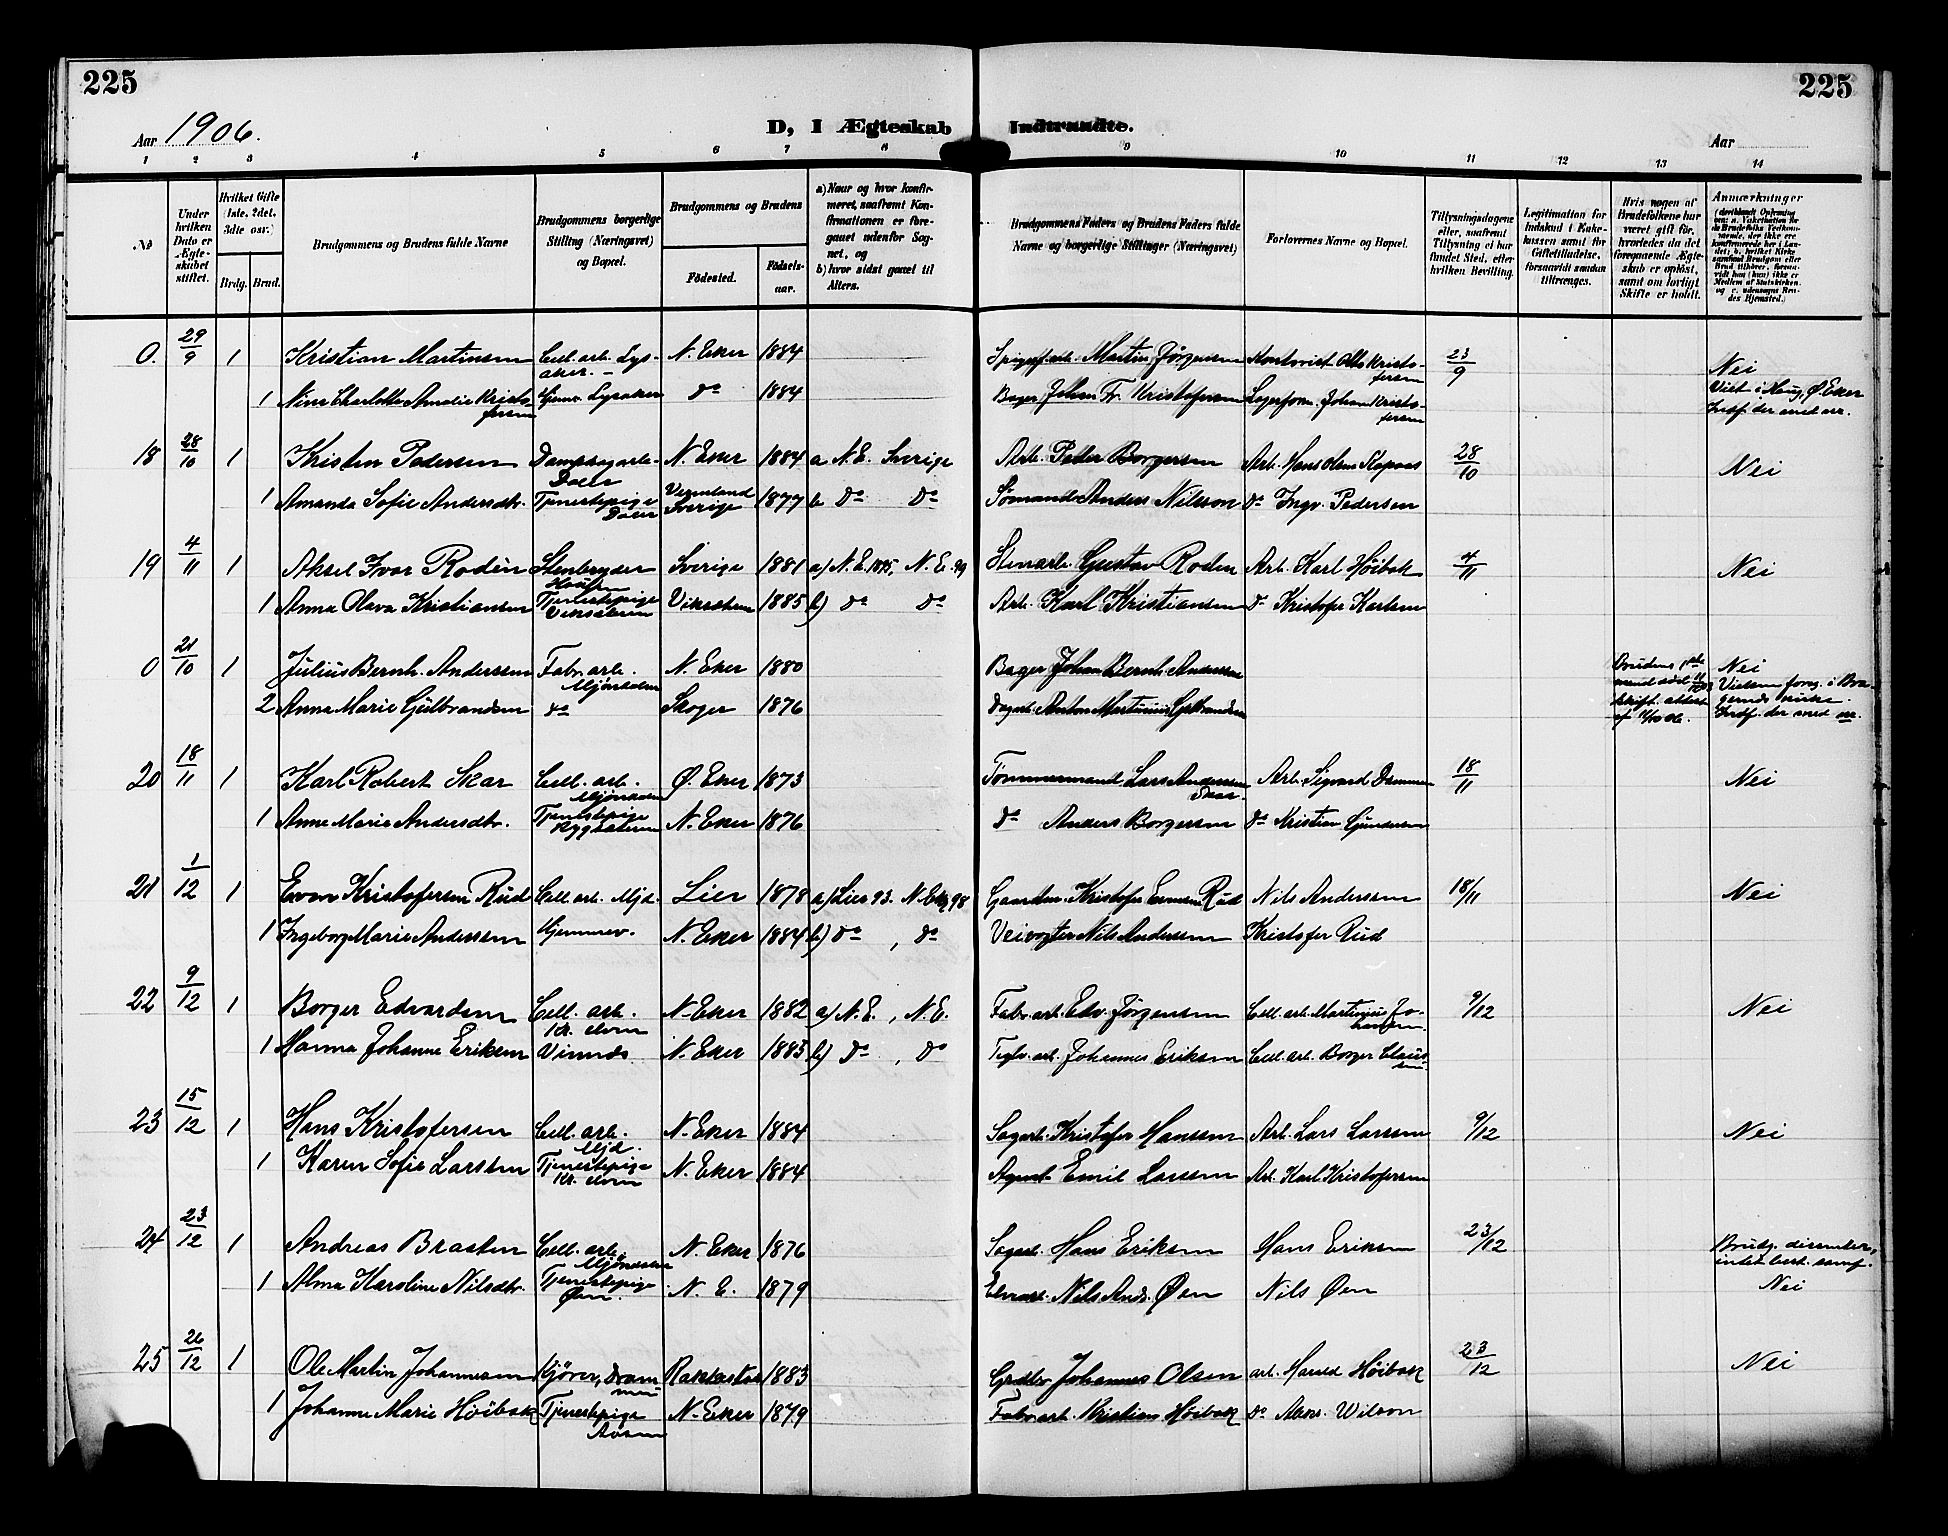 225
225
Aar 1906.
D, I Ægteskab Indtraadte.
Aar
1 2 3 4 5 6 7 8 9 10 11 12 13 14
No
Under hvilken Dato er Ægteskabet stiftet.
Hvilket Gifte (1ste, 2det, 3die osv.)
Brdg. Brud.
Brudgommens og Brudens fulde Navne
Brudgommens borgerlige Stilling (Næringsvei) og Bopæl.
Brudgommens og Brudens
Födested.
Födselsaar.
a) Naar og hvor konfirmeret, saafremt Konfirmationen er foregaaet udenfor Sognet, og
b) hvor sidst gaaet til Alters.
Brudgommens Faders og Brudens Faders fulde Navne og borgerlige Stillinger (Næringsvei)
Forlovernes Navne og Bopæl.
Tillysningsdagene eller, saafremt Tillysning ei har fundet Sted, efter hvilken Bevilling.
Legitimation for Indskud i Enkekassen samt for Giftetilladelse, forsaavidt saadan tiltrænges.
Hvis nogen af Brudefolkene har været gift för, hvorledes da det foregaaende Ægteskab er oplöst, samt om lovligt Skifte er holdt.
Anmærkninger
0. 29/9 1 Kristian Martinsen Cell. arb. Lysaker. N. Eker 1884 Martin Jørgensen Kontorist Otto Kristofersen 23/9 Nei
1 Nina Charlotte Amalie Kristofersen Hjemv. Lysaker do 1884 Bager Johan Fr. Kristofersen Lagerform. Johan Kristofersen Viet i Haug, Ø. Eker
18 28/10 1 Kristen Pedersen Dampsagarb. N. Eker 1884 a N.E. Sverige Arb. Peder Borgersen Arb. Hans Olsen 28/10 Nei
1 Amanda Sofie Andersdtr. Tjenestepige Vermland Sverige 1877 b do do Sømand Anders Nilsson do Ingv. Pedersen
19 4/11 1 Aksel Ivar Rodén Stenbryder Sverige 1881 a) N.E. 1895, N.E. 99 Stenarb. Gustav Roden Arb. Karl Høibak 4/11 Nei
1 Anna Olava Kristiansen Tjenestepige Vikestrøm 1885 b) do do Arb. Karl Kristiansen do Kristofer Karlsen
0 21/10 1 Julius Bernh. Andersen Fabr. arb. Mjøndalen N. Eker 1880 Bager Johan Bernh. Andersen Nei
2 Anna Marie Gulbrandsen do Skoger 1876 Dagarb. Anton Martinius Gulbrandsen
20 18/11 1 Karl Robert Skar Cell. arb. Mjøndalen Ø. Eker 1873 Tømmermand Lars Andersen Skar Arb. Sigvard Dammen 18/11 Nei
1 Anne Marie Andersdtr. Tjenestepige N. Eker 1876 do Anders Borgersen do Kristian Gundersen
21 1/12 1 Evan Kristofersen Rud Cell. arb. Mjd. Lier 1878 a) Lier 93. N. Eker 98 Gaardm. Kristofer Evensen Rud Nils Andersen 18/11 Nei
1 Ingeborg Marie Andersen Hjemmev. N. Eker 1884 b) do, do Veivogter Nils Andersen Kristofer Rud
22 9/12 1 Borger Edvardsen Cell. arb. N. Eker 1882 a) N.E., N.E. Fabr. arb. Edv. Jørgensen Cell. arb. Martinius Johansen 9/12 Nei
1 Hanna Johanne Eriksen N. Eker 1883 b) do, do Teglv. arb. Johannes Eriksen Cell. arb. Borger Claussen
23 15/12 1 Hans Kristofersen Cell. arb. Mjd. N. Eker 1884 Sagarb. Kristofer Hansen Arb. Lars Larsen 9/12 Nei
1 Karen Sofie Larsen Tjenestepige N. Eker 1884 Agent Emil Larsen Arb. Karl Kristofersen
24 23/12 1 Andreas Braaten Cell. arb. Mjøndalen N. Eker 1876 Sagarb. Hans Eriksen Hans Eriksen 23/12 Brudg. dissenter, intet best. samf.
1 Alma Karoline Nilsdtr. Tjenestepige Øen. N. E. 1879 Elvearb. Nils Ands. Øen Nils Øen Nei
25 26/12 1 Ole Martin Johannesen Kjører, Drammen Rakkestad 1883 Grdbr Johannes Olsen arb. Harald Høibak 23/12 Nei
1 Johanne Marie Høibak Tjenestepige Aasen N. Eker 1879 Fabr. arb. Kristian Høibak do Wilson